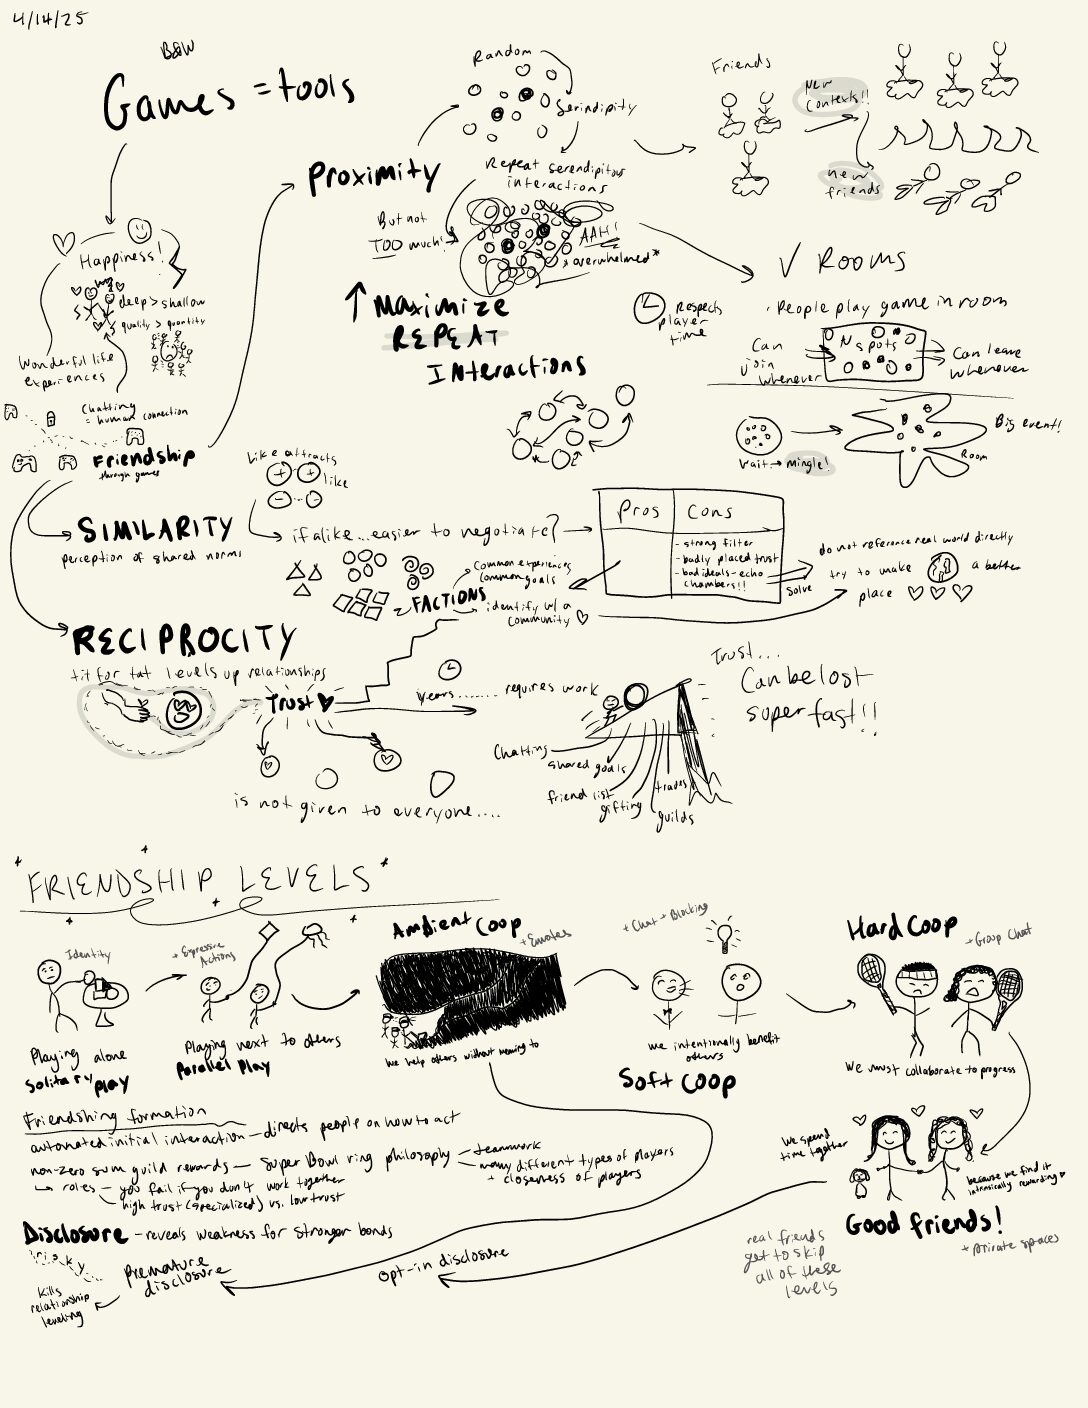 4/14/25
B&W
Games = tools
Happiness!
deep > shallow
quality > quantity
Wonderful life
experiences
Chatting
= human connection
Friendship
through games
Proximity
Random
Serindipity
Repeat serendipitous
interactions
But not
TOO much!
AAH!
*overwhelmed*
↑ Maximize
REPEAT
Interactions
Friends
New
contexts!!
new
friends
Rooms
· People play game in room
Respects
player
time
Can
join
whenever
N spots
Can leave
whenever
Wait → mingle!
Room
Big event!
SIMILARITY
perception of shared norms
Like attracts
like
+ +
- -
if alike... easier to negotiate?
FACTIONS
Common experiences
Common goals
identify w/ a
community ♡
Pros
Cons
- strong filter
- badly placed trust
- bad ideals - echo
chambers!!
Solve
do not reference real world directly
try to make
a better
place ♡ ♡ ♡
RECIPROCITY
tit for tat levels up relationships
Trust
is not given to everyone....
years........ requires work
Chatting
shared goals
friend list
gifting
trades
guilds
Trust...
Can be lost
super fast!!
FRIENDSHIP LEVELS
Identity
Playing alone
Solitary play
+ Expressive
Actions
Playing next to others
Parallel Play
Ambient Coop
+ Emotes
We help others without meaning to
+ Chat + Blocking
We intentionally benefit
others
Soft Coop
Hard Coop
+ Group Chat
We must collaborate to progress
We spend
time together
because we find it
intrinsically rewarding ♡
Good friends!
+ private spaces
real friends
get to skip
all of these
levels
Friendshing formation
automated initial interaction — directs people on how to act
non-zero sum guild rewards — Super Bowl ring philosophy
- teamwork
- many different types of players
+ closeness of players
↳ roles - you fail if you don't work together
high trust (specialized) vs. low trust
Disclosure - reveals weakness for stronger bonds
risky
Premature
disclosure
opt-in disclosure
kills
relationship
leveling